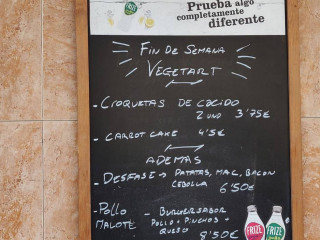 Prueba algo
completamente
diferente
FIN DE SEMANA
VEGETART
- CROQUETAS DE COCIDO
2 UND 3'75€
- CARROT CAKE 4'5€
ADEMAS
- DESFASE → PATATAS, MAC, BACON
CEBOLLA 6'50€
- POLLO
MALOTE
- BURGUERSABOR
POLLO + PINCHOS +
QUESO 8'50€
FRIZE
FRIZE